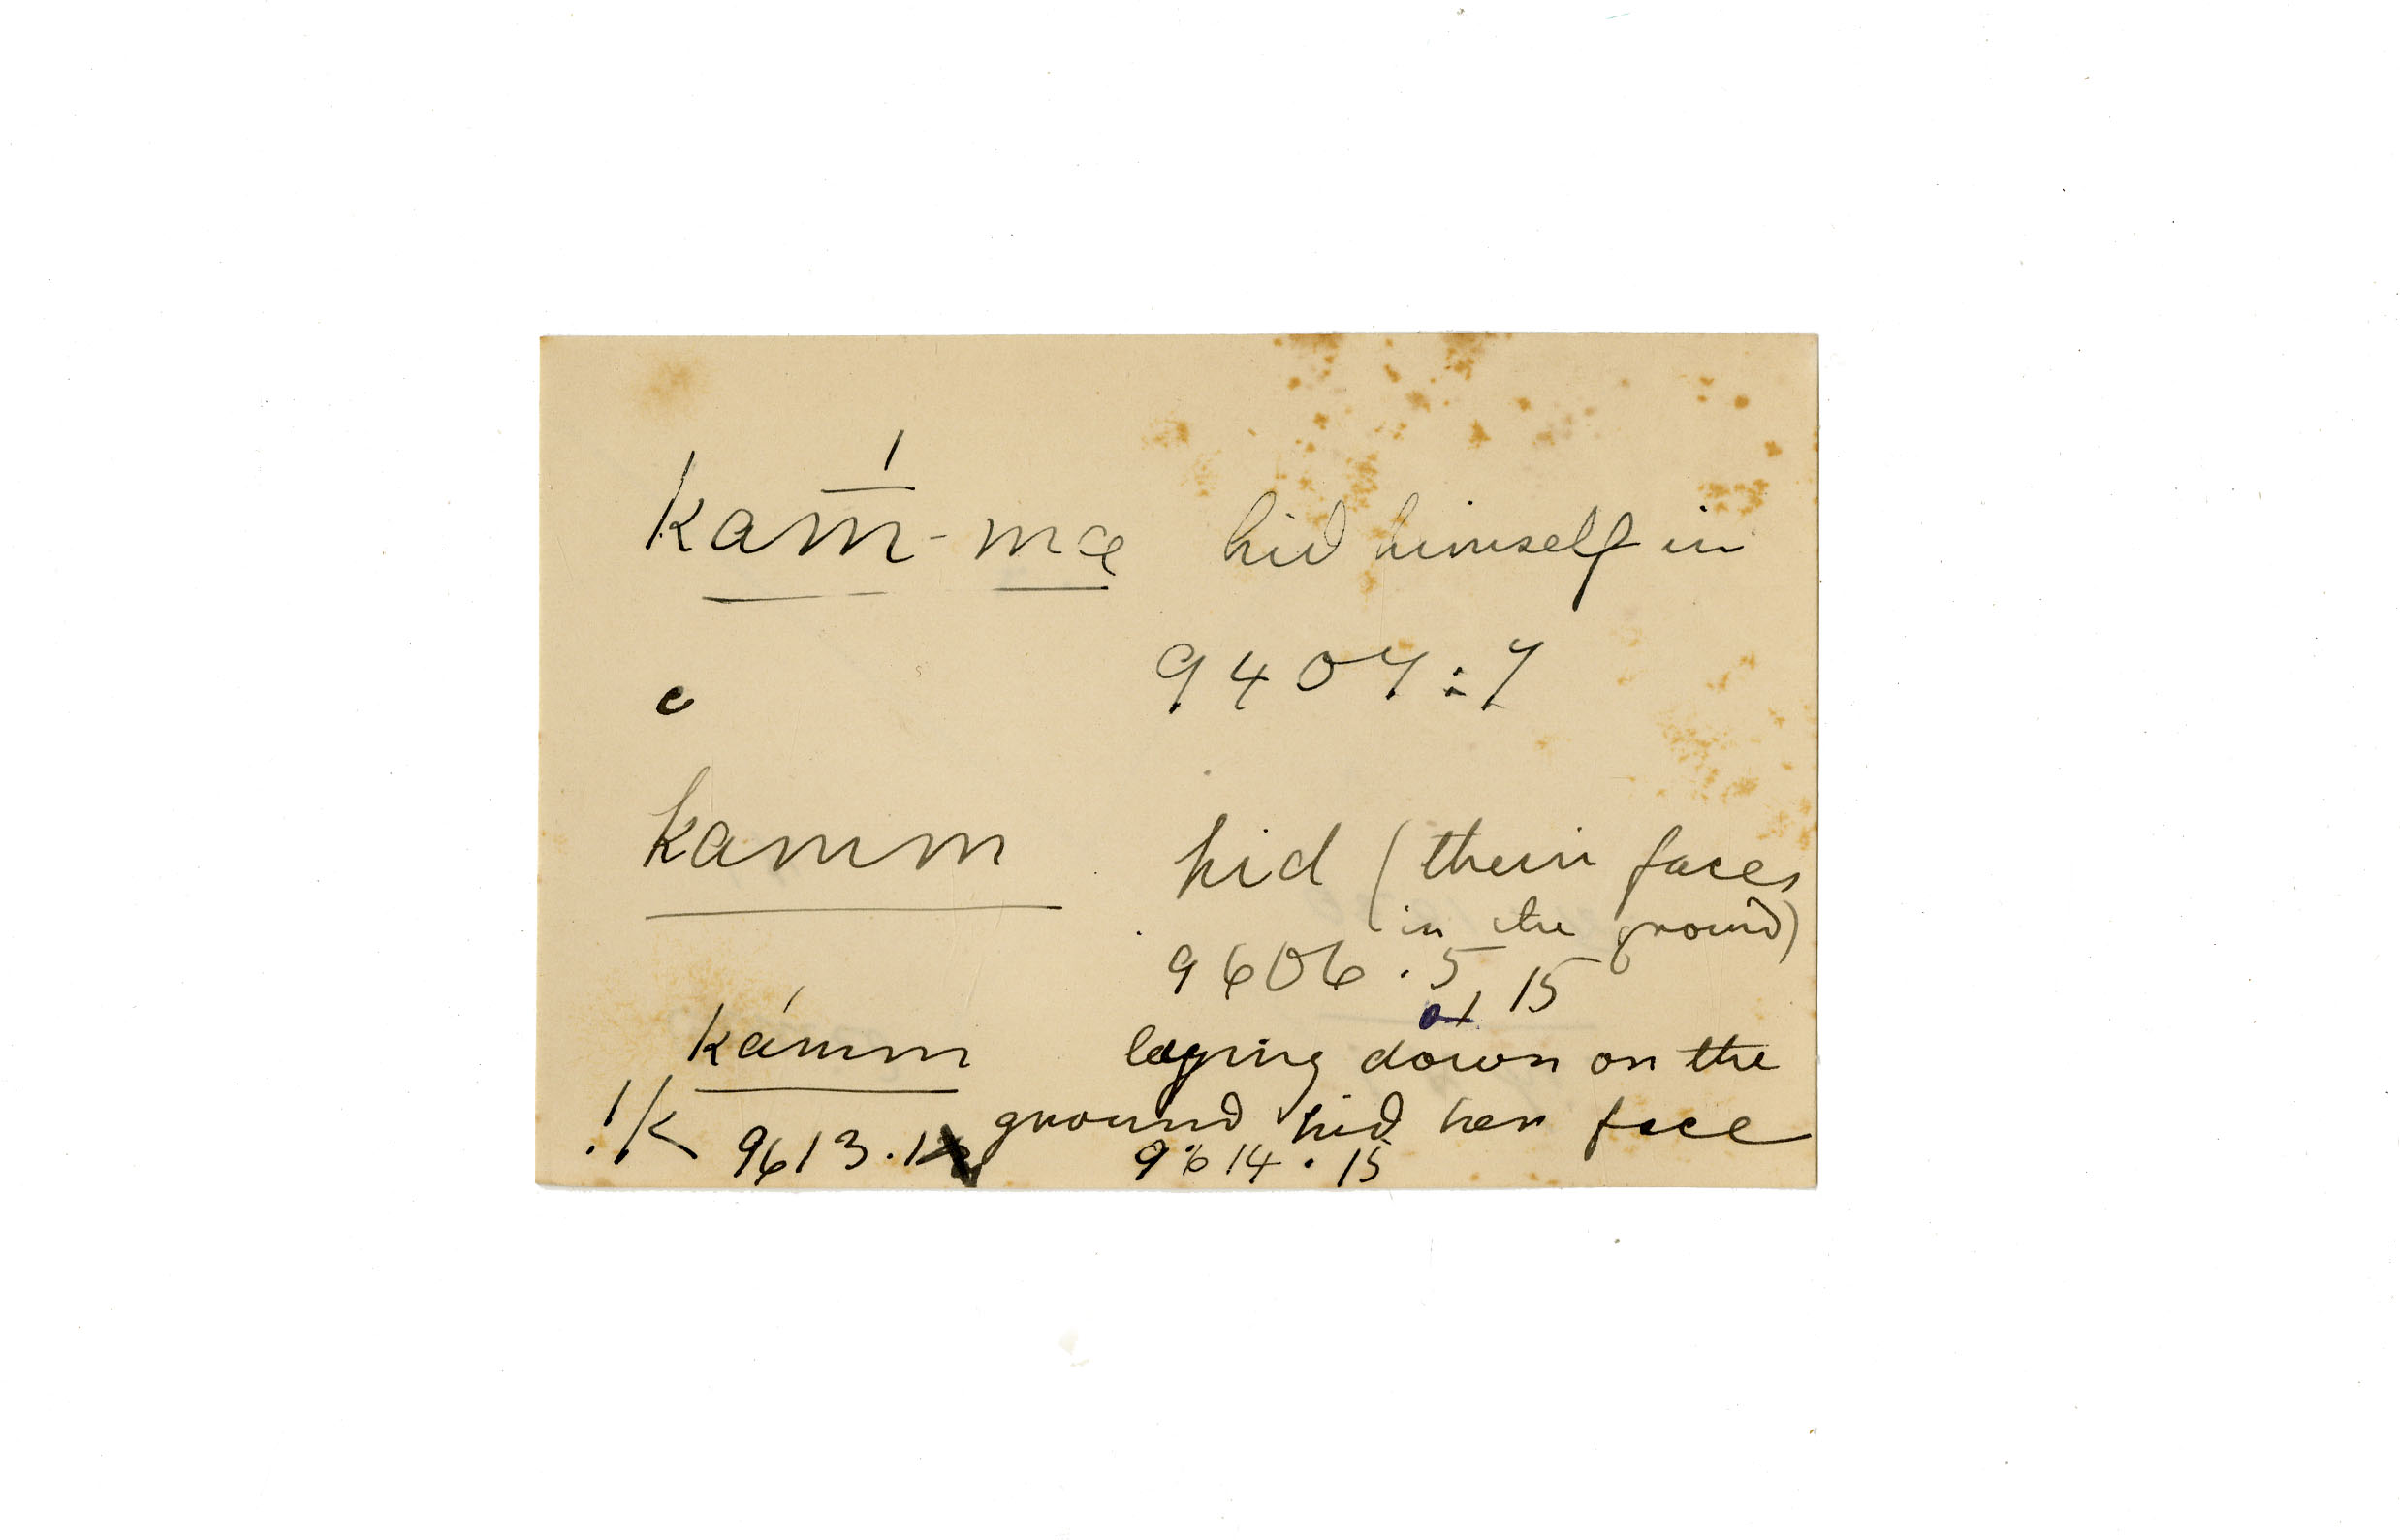 kam̄́-ma hid himself in
9407:7
c
kamm hid (their faces
in the ground)
9606.5 15
kámm laying down on the
!k ground hid her face
9613. 9614.15